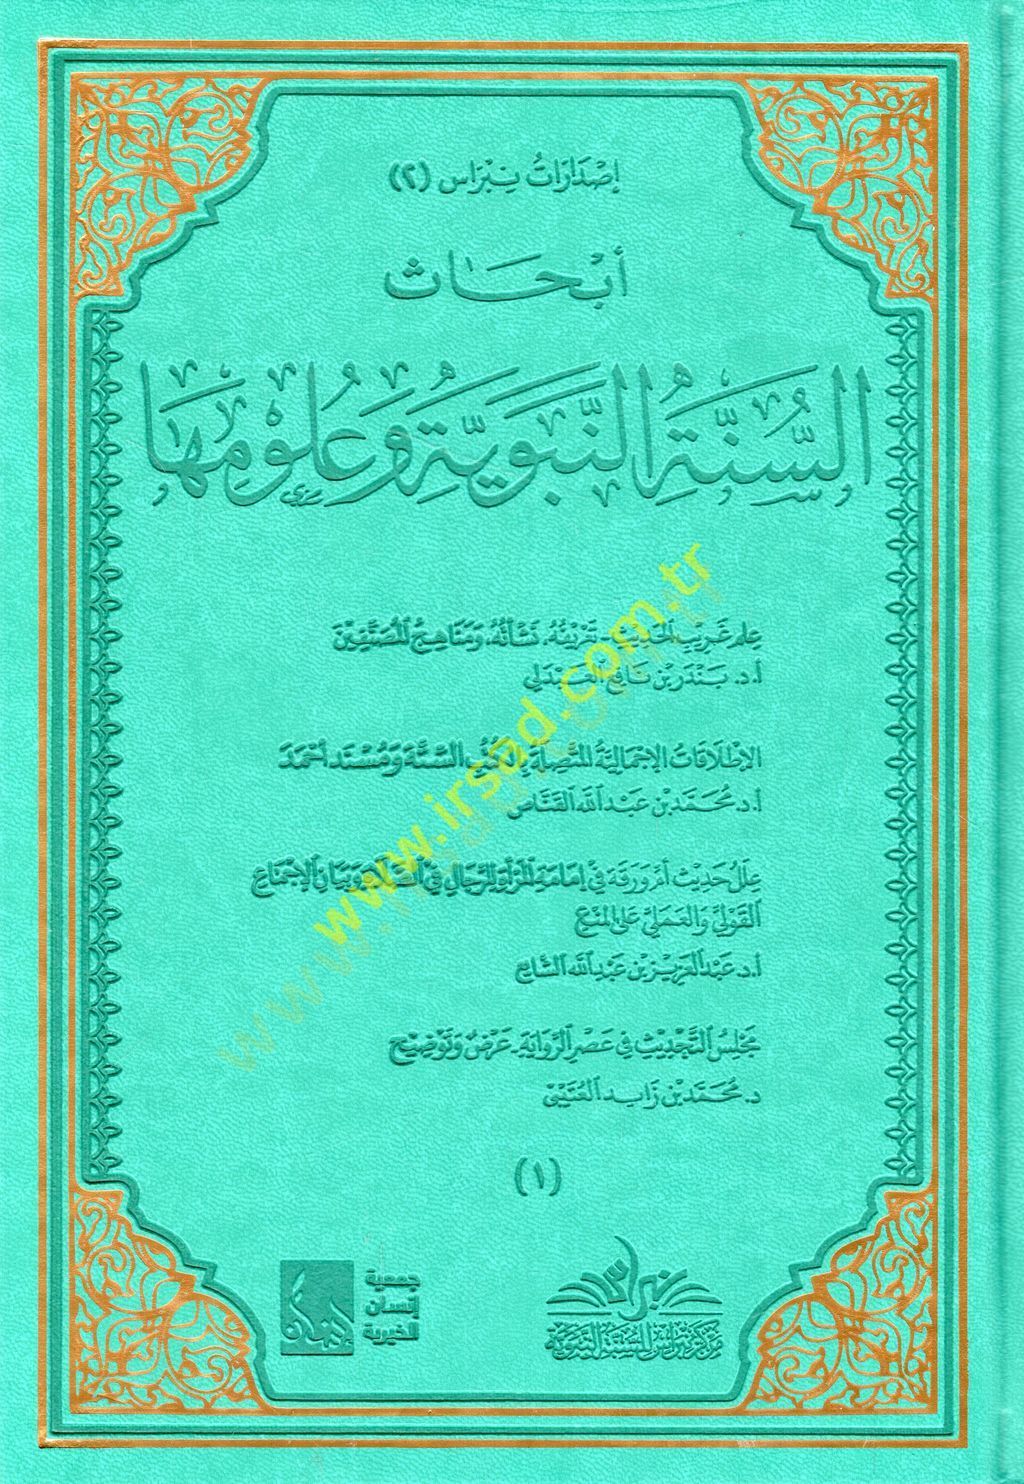 إصْدَارَاتُ نِبْرَاس (٢)
أَبْحَاث
السُّنَّةِ النَّبَوِيَّةِ وَعُلُومِهَا
عِلم غَرِيبِ الحَدِيث - تَعْرِيْفُهُ، نَشْأَتُهُ، وَمَنَاهِجُ المُصَنِّفِيْنَ
أ.د. بَنْدَر بْن نَافِع العَبْدَلِي
الإطْلَاقَاتُ الإجْمَالِيَّةُ المُتَّصِلَةُ بِالكُتُبِ السِّتَّة وَمُسْنَد أَحْمَدَ
أ.د. مُحَمَّد بْن عَبْد اللَّه القَنَّاص
عِلَلُ حَدِيْث أم وَرَقَة فِي إمَامَةِ المَرْأَةِ لِلرِّجَالِ فِي الصَّلَاةِ وَبَيَان الإجْمَاع
القَوْلِيّ وَالعَمَلِيّ عَلَى المَنْع
أ.د. عَبْد العَزِيْز بْن عَبْد اللَّه الشَّايِع
مَجْلِسُ التَّحْدِيْث فِي عَصْر الرِّوَايَة - عَرْضٌ وَتَوْضِيْح
د. مُحَمَّد بْن زَايِد العُتَيْبِي
(١)
www.irsad.com.tr
نبراس
مركز نبراس للسنة النبوية
جمعية
إنسان
الخيرية
إنسان